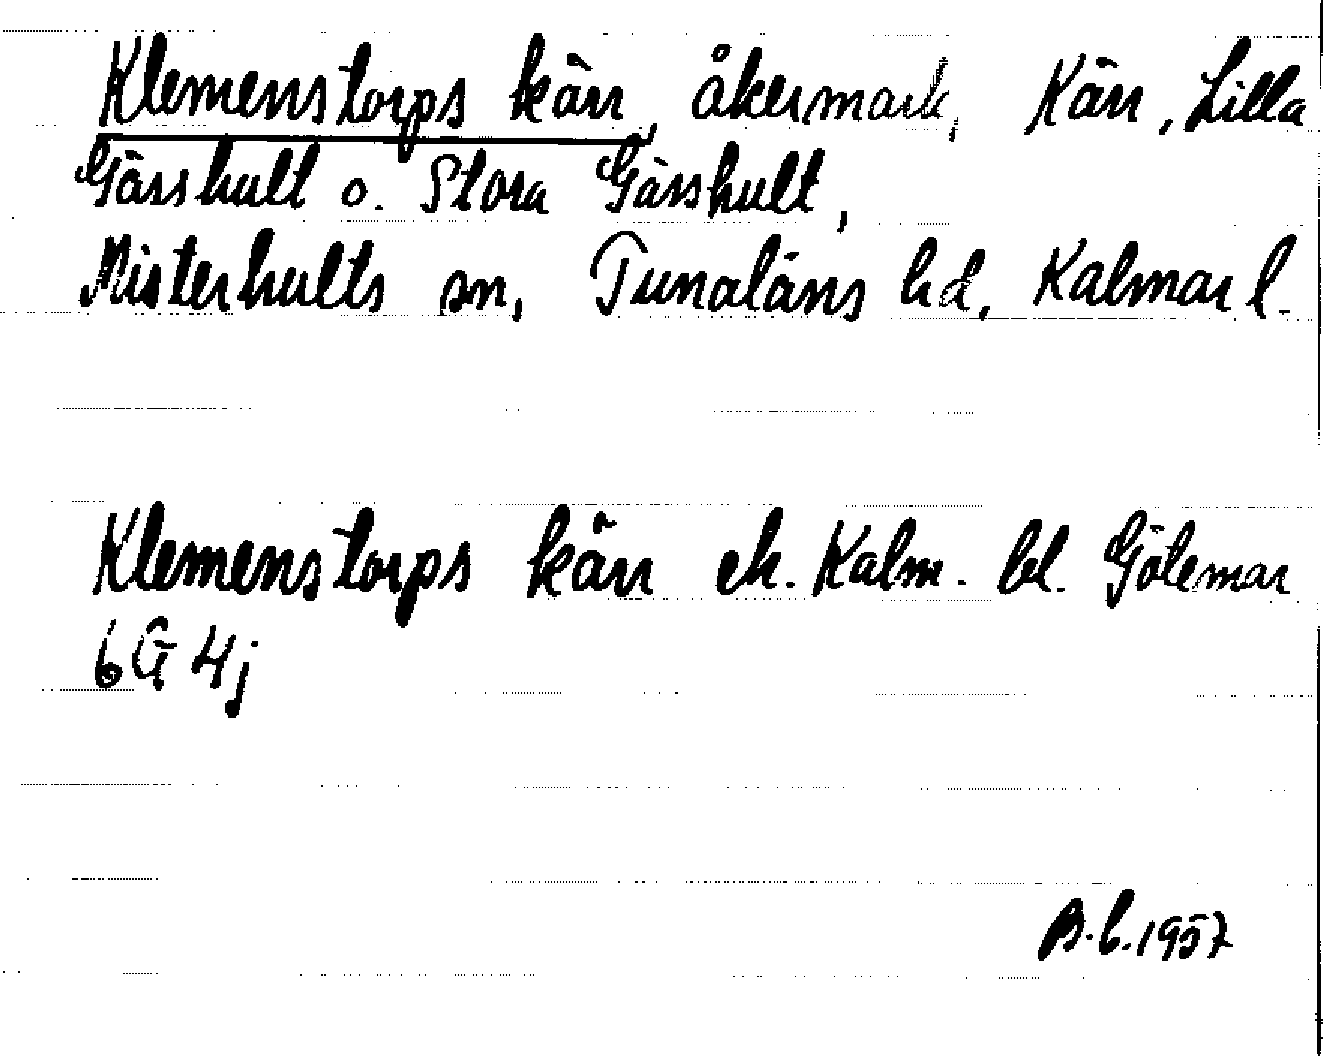 Klemenstorps kärr, åkermark, Kärr, Lilla
Gässhult o. Stora Gässhult,
Misterhults sn, Tunaläns hd, Kalmar l.
Klemenstorps kärr ek. Kalm. bl. Götemar
6G 4j
B.L. 1957